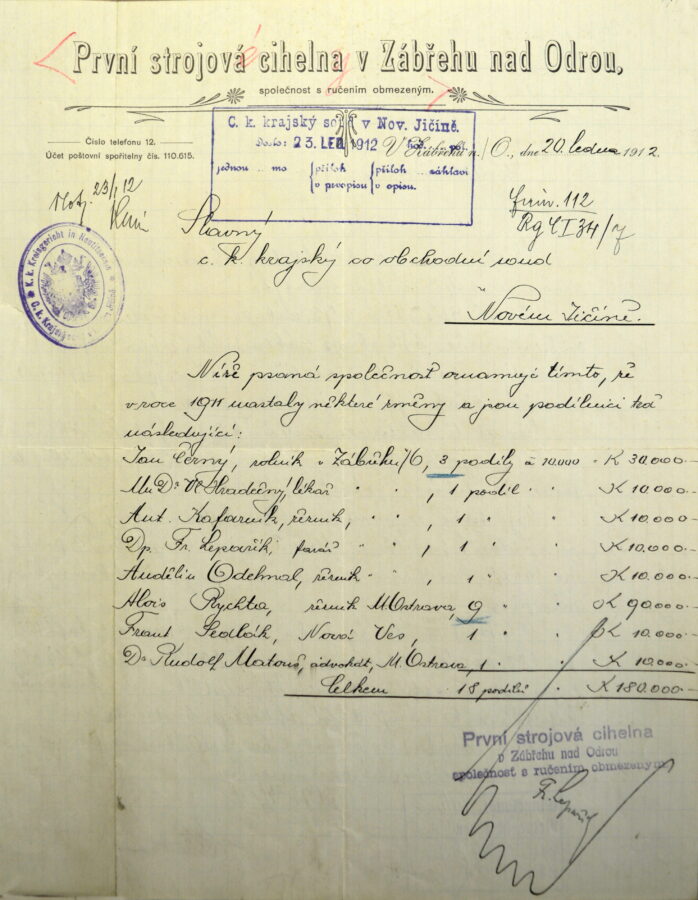 První strojová cihelna v Zábřehu nad Odrou,
společnost s ručením obmezeným.
Číslo telefonu 12.
Účet poštovní spořitelny čís. 110.615.
C. k. krajský soud v Nov. Jičíně.
Došlo: 23. LED. 1912 hod. pol.
jednou ma příloh příloh záhlaví
v prvopisu v opisu.
V Zábřehu n./O., dne 20. ledna 1912.
23/1 12
Firm. 112
Rg C I 34/7
Slavný
c. k. krajský co obchodní soud
v Novém Jičíně.
K. k. Kreisgericht in Neutitschein
Níže psaná společnost oznamuje tímto, že
v roce 1911 nastaly některé změny a jsou podílníci
následující:
Jan Černý, rolník v Zábřehu /O, 3 podíly à 10.000 K 30.000.-
MuDr Hradečný, lékař " " , 1 podíl " K 10.000.-
Ant. Kafarník, řezník, " " 1 " K 10.000.-
Dp. Fr. Lepařík, farář " " , 1 " K 10.000.-
Andělín Odehnal, řezník " " , 1 " K 10.000.-
Alois Rychta, řezník M. Ostrava, 9 " " K 90000.-
Frant Sedlák, Nová Ves, 1 " " K 10.000.-
Dr Rudolf Matouš, advokát, M. Ostrava, 1 " " K 10.000.-
Celkem 18 podílů K 180.000.-
První strojová cihelna
v Zábřehu nad Odrou
společnost s ručením obmezeným
Fr. Lepařík